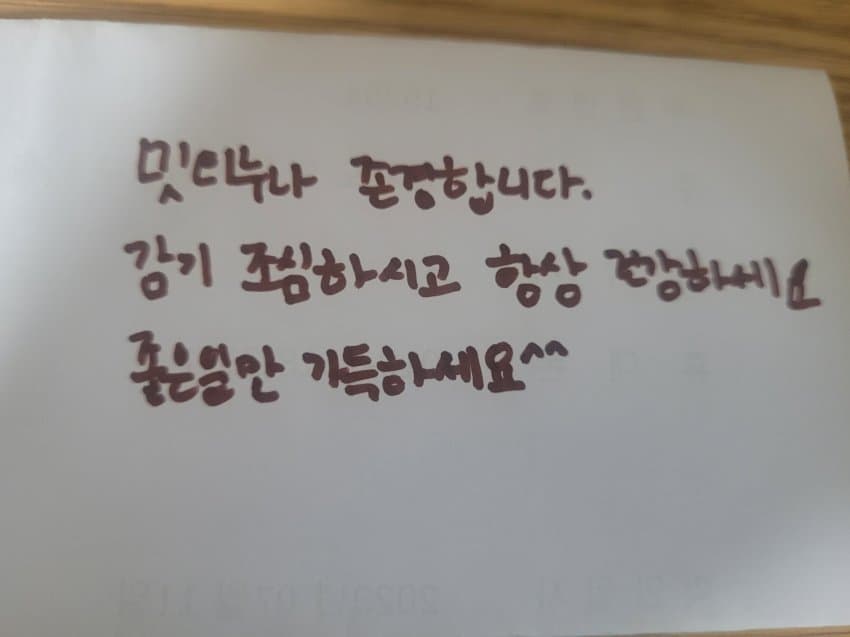 밋티누나 존경합니다.
감기 조심하시고 항상 건강하세요
좋은일만 가득하세요^^